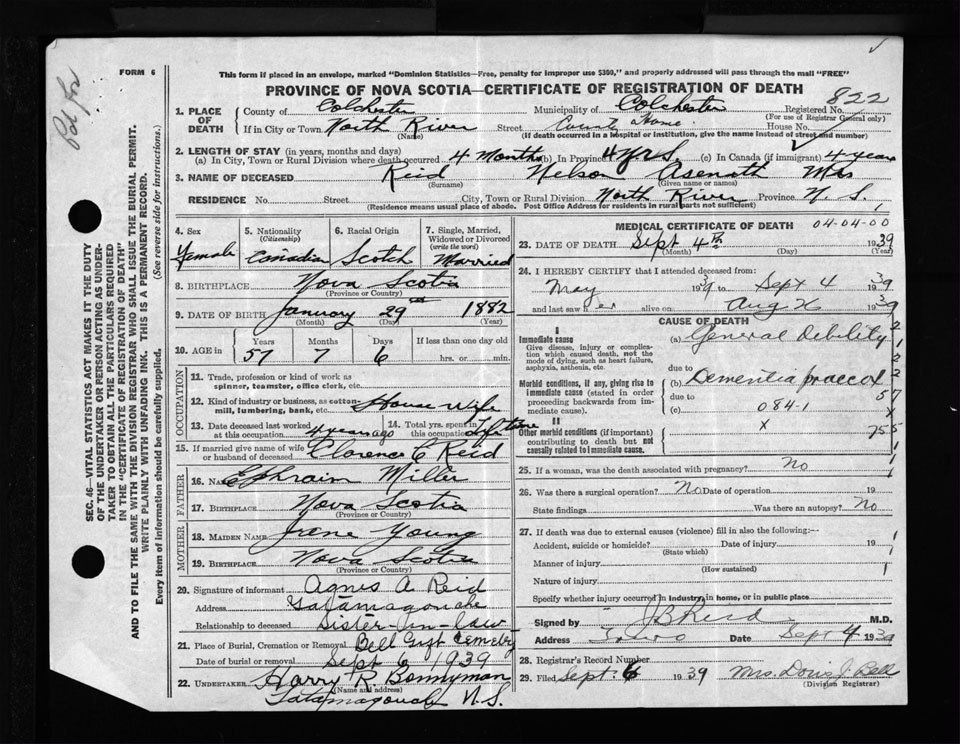 Pd
FORM 6
This form if placed in an envelope, marked "Dominion Statistics—Free, penalty for improper use $300," and properly addressed will pass through the mail "FREE"
PROVINCE OF NOVA SCOTIA—CERTIFICATE OF REGISTRATION OF DEATH
1. PLACE OF DEATH County of Colchester Municipality of Colchester Registered No. 822
(For use of Registrar General only)
If in City or Town North River Street County Home House No.
(Name) (If death occurred in a hospital or institution, give the name instead of street and number)
2. LENGTH OF STAY (in years, months and days)
(a) In City, Town or Rural Division where death occurred 4 Months (b) In Province 4 yrs (c) In Canada (if immigrant) 4 years
3. NAME OF DECEASED Reid Nelson Asenath Mrs
(Surname) (Given name or names)
RESIDENCE No. Street City, Town or Rural Division North River Province N. S.
(Residence means usual place of abode. Post Office Address for residents in rural parts not sufficient)
4. Sex Female
5. Nationality (Citizenship) Canadian
6. Racial Origin Scotch
7. Single, Married, Widowed or Divorced (write the word) Married
8. BIRTHPLACE Nova Scotia
(Province or Country)
9. DATE OF BIRTH January 29 1882
(Month) (Day) (Year)
10. AGE in Years 57 Months 7 Days 6 If less than one day hrs. or min.
OCCUPATION
11. Trade, profession or kind of work as spinner, teamster, office clerk, etc.
12. Kind of industry or business, as cotton-mill, lumbering, bank, etc. House Wife
13. Date deceased last worked at this occupation 4 years ago
14. Total yrs. spent in this occupation Life time
15. If married give name of wife or husband of deceased Clarence C Reid
FATHER
16. NAME Ephraim Miller
17. BIRTHPLACE Nova Scotia
(Province or Country)
MOTHER
18. MAIDEN NAME Irene Young
19. BIRTHPLACE Nova Scotia
(Province or Country)
20. Signature of informant Agnes A Reid
Address Tatamagouche
Relationship to deceased Sister-In-law
21. Place of Burial, Cremation or Removal Bell Cemetry
Date of burial or removal Sept 6 1939
22. UNDERTAKER Harry R Bonnyman
(Name and address)
Tatamagouche N.S.
MEDICAL CERTIFICATE OF DEATH 04-04-00
23. DATE OF DEATH Sept 4th 1939
(Month) (Day) (Year)
24. I HEREBY CERTIFY that I attended deceased from:
May 1939 to Sept 4 1939
and last saw her alive on Aug 1939
CAUSE OF DEATH
I
Immediate cause
Give disease, injury or complication which caused death, not the mode of dying, such as heart failure, asphyxia, asthenia, etc.
(a) General debility
due to
Morbid conditions, if any, giving rise to immediate cause (stated in order proceeding backwards from immediate cause).
(b) Dementia praecox
due to
(c) 084.1
II
Other morbid conditions (if important) contributing to death but not causally related to immediate cause.
x
25. If a woman, was the death associated with pregnancy? No
26. Was there a surgical operation? No Date of operation 19
State findings Was there an autopsy? No
27. If death was due to external causes (violence) fill in also the following:—
Accident, suicide or homicide? Date of injury 19
(State which)
Manner of injury
(How sustained)
Nature of injury
Specify whether injury occurred in industry, in home, or in public place
Signed by J B Reid M.D.
Address Truro Date Sept 4 1939
28. Registrar's Record Number
29. Filed Sept. 6 1939 Mrs. Doris J. Bell
(Division Registrar)
SEC. 46—VITAL STATISTICS ACT MAKES IT THE DUTY
OF THE UNDERTAKER OR PERSON ACTING AS UNDER-
TAKER TO OBTAIN ALL THE PARTICULARS REQUIRED
IN THE "CERTIFICATE OF REGISTRATION OF DEATH"
AND TO FILE THE SAME WITH THE DIVISION REGISTRAR WHO SHALL ISSUE THE BURIAL PERMIT.
WRITE PLAINLY WITH UNFADING INK. THIS IS A PERMANENT RECORD.
Every item of information should be carefully supplied. (See reverse side for instructions.)